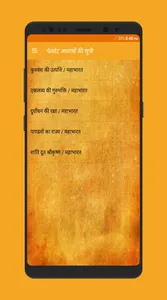 फेवरेट अध्यायों की सूची
कुरुवंश की उत्पत्ति / महाभारत
एकलव्य की गुरुभक्ति / महाभारत
दुर्योधन की रक्षा / महाभारत
पाण्डवों का राज्य / महाभारत
शांति दूत श्रीकृष्ण / महाभारत